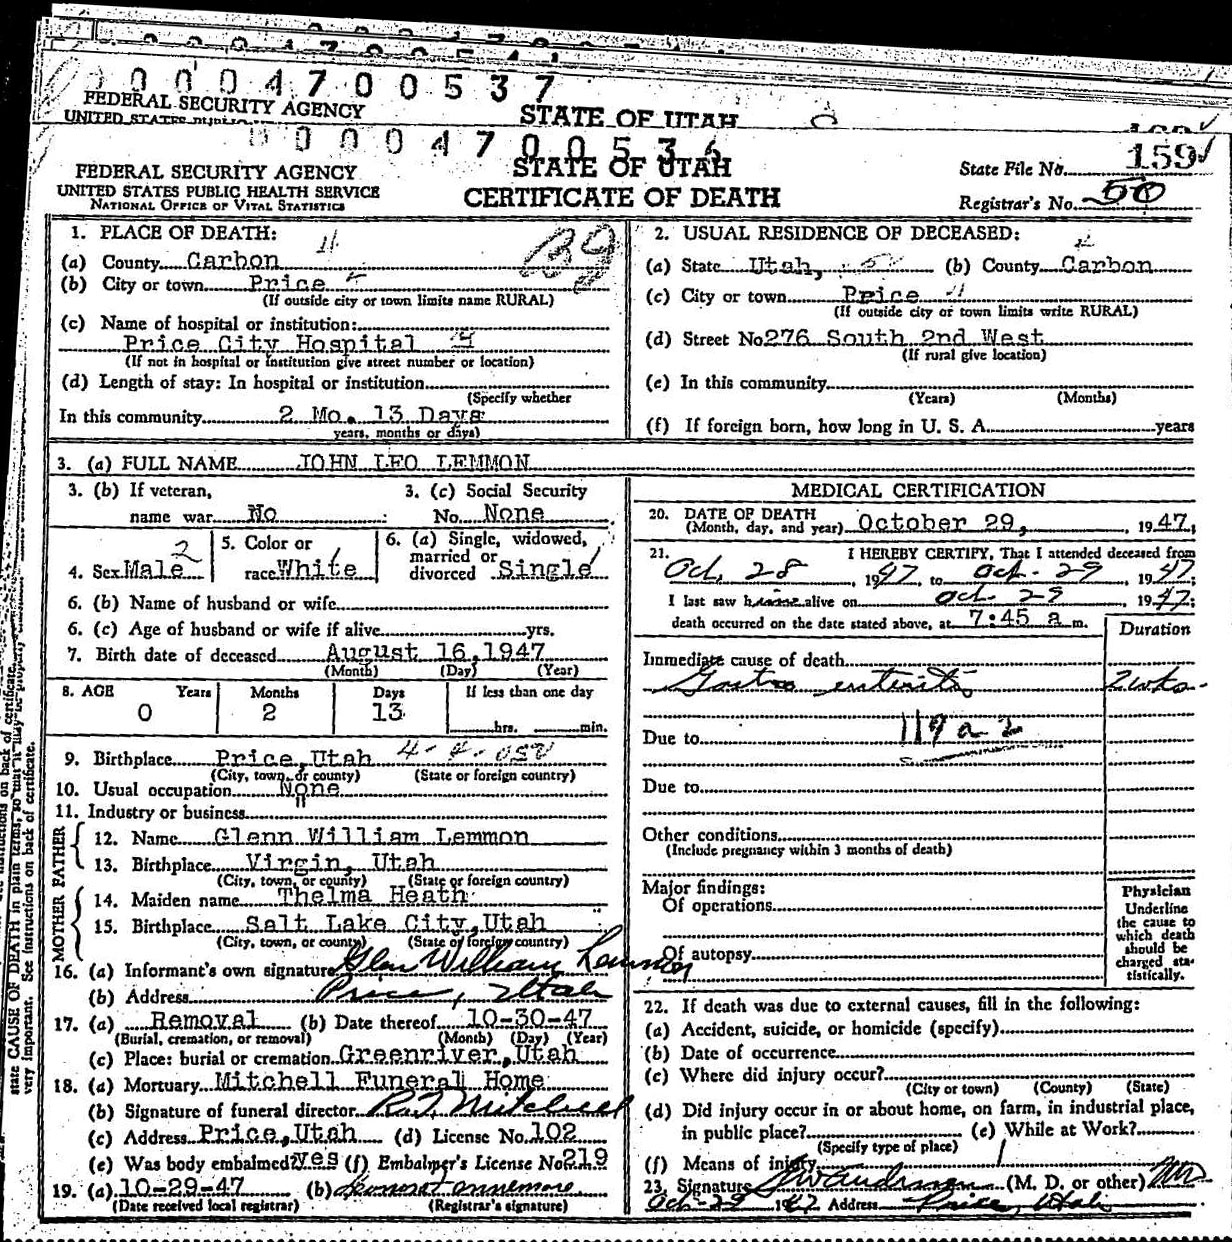 0004700537
FEDERAL SECURITY AGENCY
STATE OF UTAH
0004700536
FEDERAL SECURITY AGENCY
UNITED STATES PUBLIC HEALTH SERVICE
NATIONAL OFFICE OF VITAL STATISTICS
STATE OF UTAH
CERTIFICATE OF DEATH
State File No. 159
Registrar's No. 50
1. PLACE OF DEATH:
(a) County Carbon
(b) City or town Price
(If outside city or town limits name RURAL)
(c) Name of hospital or institution:
Price City Hospital
(If not in hospital or institution give street number or location)
(d) Length of stay: In hospital or institution
(Specify whether
In this community 2 Mo. 13 Days
years, months or days)
2. USUAL RESIDENCE OF DECEASED:
(a) State Utah, (b) County Carbon
(c) City or town Price
(If outside city or town limits write RURAL)
(d) Street No. 276 South 2nd West
(If rural give location)
(e) In this community
(Years) (Months)
(f) If foreign born, how long in U. S. A. years
3. (a) FULL NAME JOHN LEO LEMMON
3. (b) If veteran, 3. (c) Social Security
name war No No. None
4. Sex Male 2
5. Color or
race White 1
6. (a) Single, widowed,
married or
divorced Single 1
6. (b) Name of husband or wife
6. (c) Age of husband or wife if alive yrs.
7. Birth date of deceased August 16, 1947
(Month) (Day) (Year)
8. AGE Years Months Days If less than one day
0 2 13 hrs. min.
9. Birthplace Price, Utah
(City, town, or county) (State or foreign country)
10. Usual occupation None
11. Industry or business "
FATHER
12. Name Glenn William Lemmon
13. Birthplace Virgin, Utah
(City, town, or county) (State or foreign country)
MOTHER
14. Maiden name Thelma Heath
15. Birthplace Salt Lake City, Utah
(City, town, or county) (State or foreign country)
16. (a) Informant's own signature Glen William Lemmon
(b) Address Price, Utah
17. (a) Removal (b) Date thereof 10-30-47
(Burial, cremation, or removal) (Month) (Day) (Year)
(c) Place: burial or cremation Greenriver, Utah
18. (a) Mortuary Mitchell Funeral Home
(b) Signature of funeral director Mitchell
(c) Address Price, Utah (d) License No. 102
(e) Was body embalmed? yes (f) Embalmer's License No. 219
19. (a) 10-29-47 (b)
(Date received local registrar) (Registrar's signature)
MEDICAL CERTIFICATION
20. DATE OF DEATH
(Month, day, and year) October 29, 1947
21. I HEREBY CERTIFY, That I attended deceased from
Oct. 28, 1947, to Oct. 29, 1947;
I last saw him alive on Oct 29, 1947;
death occurred on the date stated above, at 7:45 a m.
Duration
Immediate cause of death
Gastro enteritis 2 wks.
119 a 2
Due to
Due to
Other conditions
(Include pregnancy within 3 months of death)
Major findings:
Of operations
Of autopsy
Physician
Underline
the cause to
which death
should be
charged sta-
tistically.
22. If death was due to external causes, fill in the following:
(a) Accident, suicide, or homicide (specify)
(b) Date of occurrence
(c) Where did injury occur?
(City or town) (County) (State)
(d) Did injury occur in or about home, on farm, in industrial place,
in public place? (e) While at Work?
(Specify type of place)
(f) Means of injury
23. Signature (M. D. or other) MD
Oct-29 1947 Address Price, Utah
state CAUSE OF DEATH in plain terms, so that it may be properly
very important. See instructions on back of certificate.